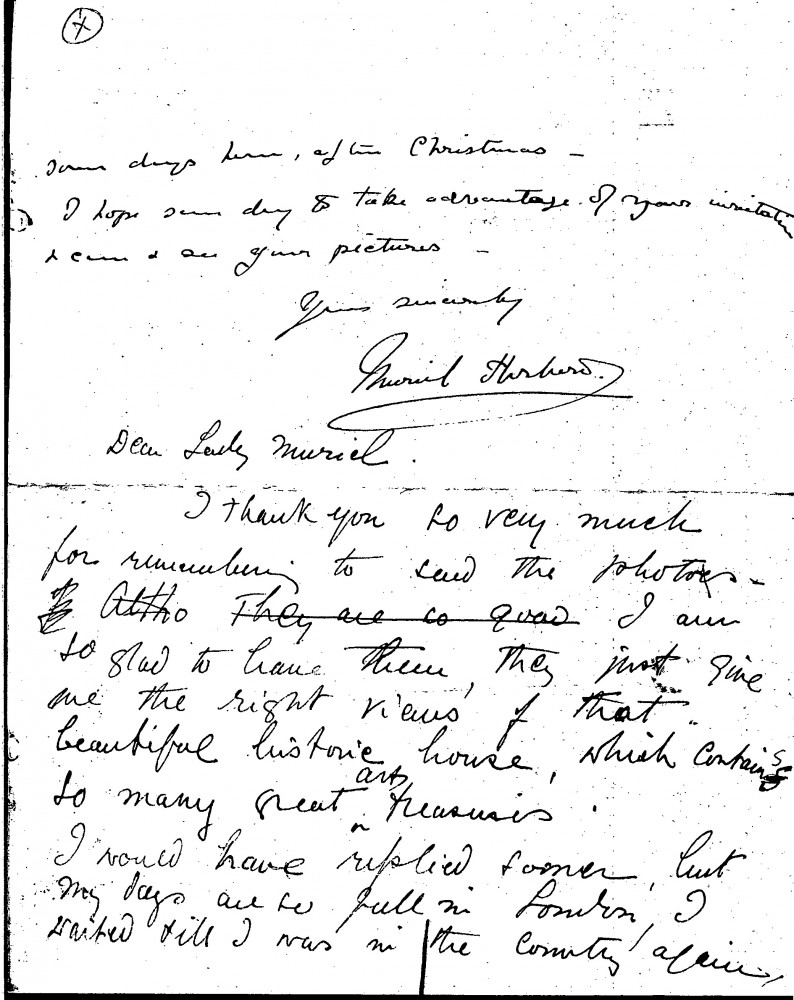 +
some days here, after Christmas –
I hope some day to take advantage of your invitation
& come & see your pictures –
Yours sincerely
Muriel Herbert.
Dear Lady Muriel.
I thank you so very much
for remembering to send the photos –
Altho They are so good I am
so glad to have them, they just give
me the right views of that
beautiful historic house, which contains
so many great art treasures.
I would have replied sooner, but
my days are so full in London, I
waited till I was in the country again,